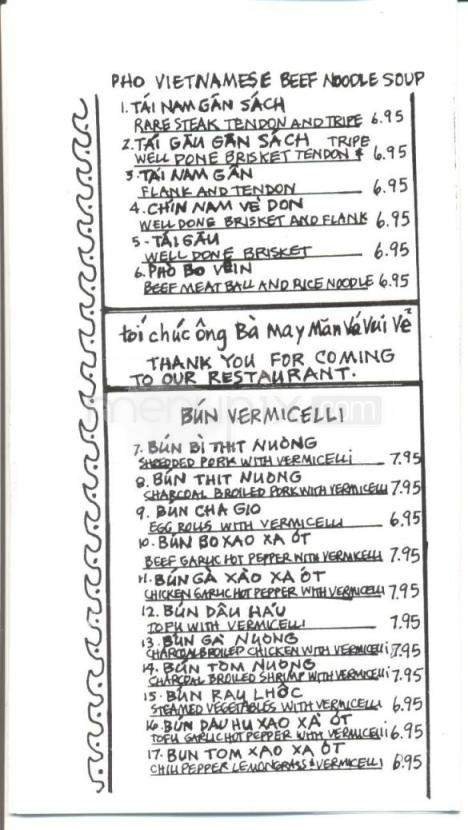 PHO VIETNAMESE BEEF NOODLE SOUP
1. TÁI NAM GÂN SÁCH
RARE STEAK TENDON AND TRIPE 6.95
2. TÁI GÂU GÂN SÁCH TRIPE
WELL DONE BRISKET TENDON & 6.95
3. TÁI NAM GÂN
FLANK AND TENDON 6.95
4. CHÍN NAM VÈ DON
WELL DONE BRISKET AND FLANK 6.95
5- TÁI GÂU
WELL DONE BRISKET 6.95
6. PHỞ BO VEIN
BEEF MEAT BALL AND RICE NOODLE 6.95
tối chúc ông Bà May Mắn Và Vui Vẻ
THANK YOU FOR COMING
TO OUR RESTAURANT.
BÚN VERMICELLI
7. BÚN BÌ THIT NUONG
SHREDDED PORK WITH VERMICELLI 7.95
8. BÚN THIT NUONG
CHARCOAL BROILED PORK WITH VERMICELLI 7.95
9. BÚN CHA GIO
EGG ROLLS WITH VERMICELLI 6.95
10. BÚN BO XAO XA ÓT
BEEF GARLIC HOT PEPPER WITH VERMICELLI 7.95
11. BÚN GÀ XÀO XA ÓT
CHICKEN GARLIC HOT PEPPER WITH VERMICELLI 7.95
12. BÚN DÂU HÁU
TOFU WITH VERMICELLI 7.95
13 BÚN GÀ NUONG
CHARCOAL BROILED CHICKEN WITH VERMICELLI 7.95
14. BÚN TÔM NUONG
CHARCOAL BROILED SHRIMP WITH VERMICELLI 7.95
15. BÚN RAU LHOC
STEAMED VEGETABLES WITH VERMICELLI 6.95
16. BÚN DAU HU XAO XẢ ÓT
TOFU GARLIC HOT PEPPER WITH VERMICELLI 6.95
17. BUN TOM XAO XA ÓT
CHILI PEPPER LEMONGRASS & VERMICELLI 6.95
menupix.com